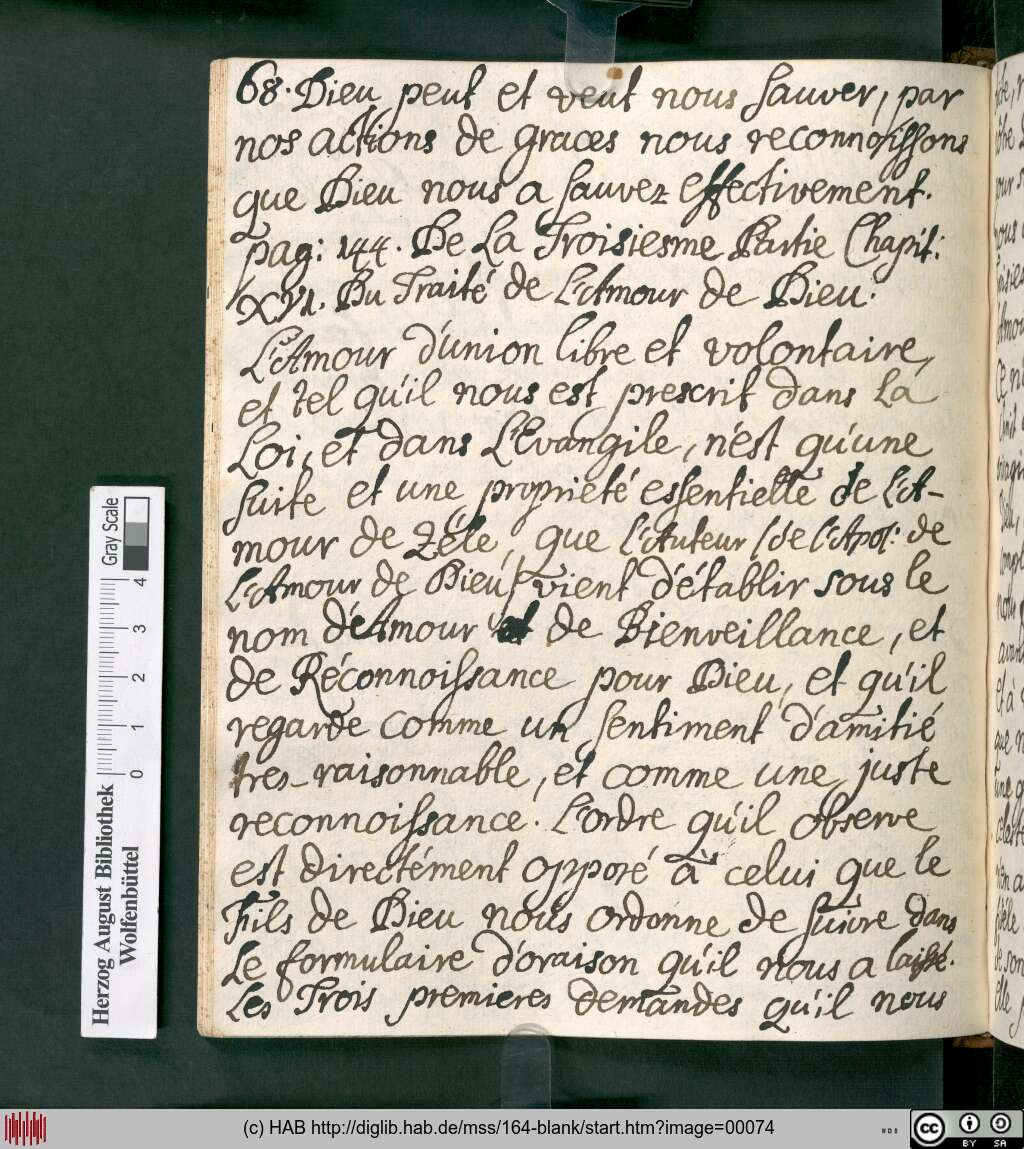 68. Dieu peut et veut nous sauver, par
nos actions de graces nous reconnoissons
que Dieu nous a sauvez effectivement.
pag: 144. De La Troisiesme Partie Chapit:
XVI. Du Traité de L'Amour de Dieu.
L'Amour d'union libre et volontaire,
et tel qu'il nous est prescrit dans La
Loi, et dans L'Evangile, n'est qu'une
suite et une proprieté essentielle de L'A-
mour de Zéle, que L'Auteur (de L'Apol: de
L'Amour de Dieu) vient d'établir sous le
nom d'Amour de Bienveillance, et
de Réconnoissance pour Dieu, et qu'il
regarde comme un sentiment d'amitié
tres-raisonnable, et comme une juste
reconnoissance. L'ordre qu'il observe
est directément opposé à celui que le
Fils de Dieu nous ordonne de suivre dans
Le formulaire d'oraison qu'il nous a laissé.
Les Trois premieres demandes qu'il nous
Herzog August Bibliothek
Wolfenbüttel
Gray Scale
0 1 2 3 4
(c) HAB http://diglib.hab.de/mss/164-blank/start.htm?image=00074
cc BY SA